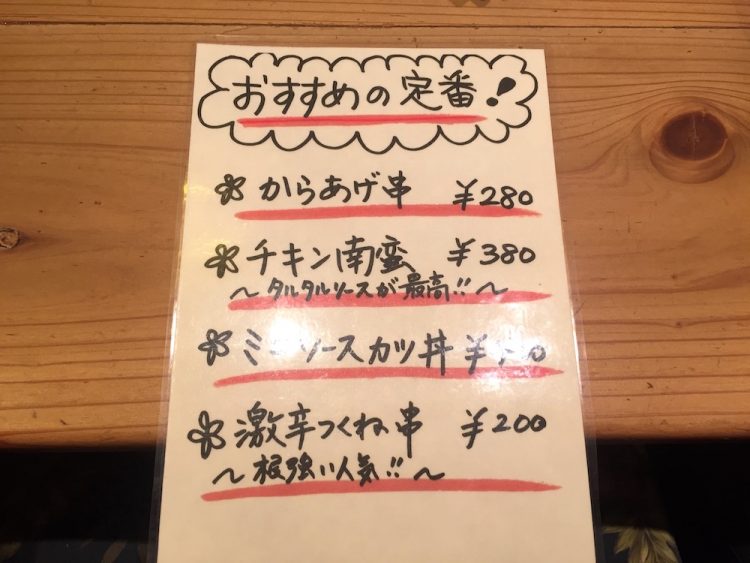 おすすめの定番!
からあげ串 ¥280
チキン南蛮 ¥380
〜タルタルソースが最高!!〜
ミニソースカツ丼
激辛つくね串 ¥200
〜根強い人気!!〜